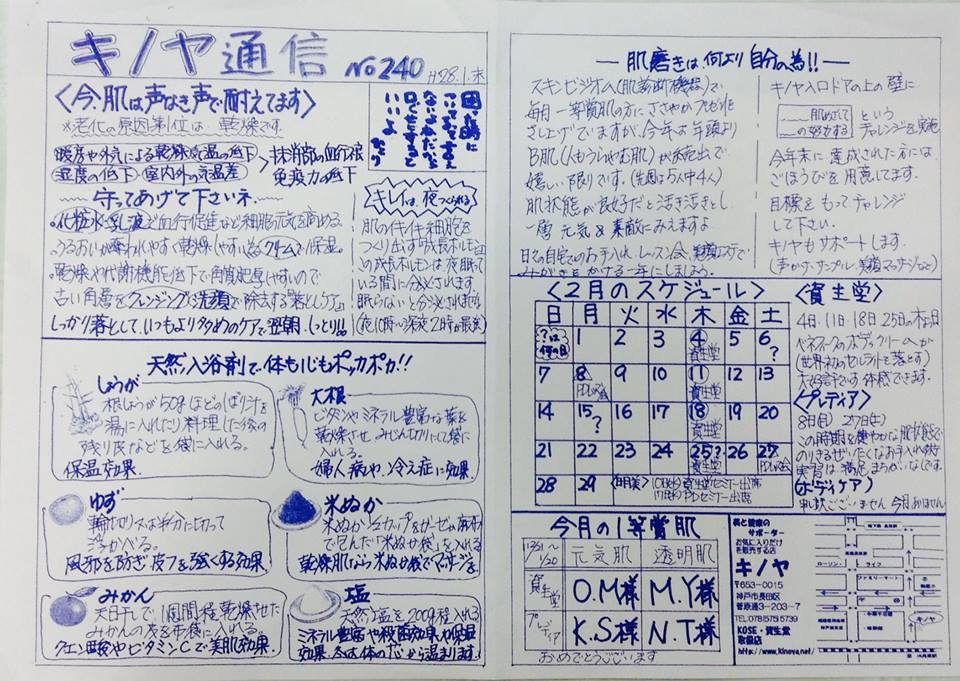 キノヤ通信 No240 H28.1.末
〈今、肌は声なき声で耐えてます〉
※老化の原因第1位は 乾燥です。
暖房や外気による乾燥 気温の低下
湿度の低下 室内外の気温差
抹消部の血行不良
免疫力の低下
守ってあげて下さいネ
・化粧水と乳液で血行促進など細胞の元気を高める。
・うるおいが奪われやすく乾燥しやすい為クリームで保湿。
・乾燥や代謝機能低下で角質肥厚しやすいので
古い角層をクレンジングと洗顔で除去する「落としケア」
しっかり落として、いつもより多めのケアで翌朝しっとり!!
困った時に
キレイは、夜つくられる
肌のイキイキ細胞を
つくり出す成長ホルモン
この成長ホルモンは夜眠って
いる間に分泌されます。
眠らないと分泌されません
(夜10時〜深夜2時が最強)
天然入浴剤で、体も心もポッカポカ!!
しょうが
根しょうが50gほどのしぼり汁を
湯に入れたり料理した後の
残り皮などを袋に入れる。
保温効果
大根
ビタミンやミネラル豊富な葉を
乾燥させ みじん切りにして袋に
入れる。
婦人病や、冷え症に効果
ゆず
輪切り又は半分に切って
浮かべる。
風邪を防ぎ皮フを強くする効果
米ぬか
米ぬか2カップをガーゼか麻布
で包んだ「米ぬか袋」を入れる
乾燥肌なら米ぬか袋でマッサージを
みかん
天日干しで1週間程乾燥させた
みかんの皮を布袋に入れる。
クエン酸やビタミンCで美肌効果
塩
天然塩を200g程入れる
ミネラル豊富で殺菌効果や保温
効果。冬は体の芯から温まります。
― 肌磨きは何より自分の為!! ―
スキンビジオム(肌診断機器)で
毎月一等賞肌の方にささやかプレゼントを
さし上げていますが、今年は年頭より
B肌(人もうらやむ肌)が続出で
嬉しい限りです。(先週は5人中4人)
肌状態が良好だと活き活きとし
一層元気&素敵にみえますよ
日々の自宅でのお手入れ、レッスン会、美顔エステで
みがきをかける一年にしましょう。
キノヤ入口ドアの上の壁に
肌めざして
の努力する
という
チャレンジを実施
今年末に達成された方には
ごほうびを用意してます。
目標をもってチャレンジ
して下さい。
キノヤもサポートします。
(声かけ、サンプル、美顔マッサージなど)
〈2月のスケジュール〉
日 月 火 水 木 金 土
?は何の日 1 2 3 4 資生堂 5 6?
7 8 PDレッスン会 9 10 11 資生堂 12 13
14 15? 16 17 18 資生堂 19 20
21 22 23 24 25? 資生堂 26 27 PDレッスン会
28 29 (日)(月) 10(水)資生堂セミナー出席
17(水)PDセミナー出席
〈資生堂〉
4日・11日・18日・25日の木曜日
ベネフィークのボディクリームが
(世界初のセルライトを落とす)
大好評です 体感できます。
〈プレディア〉
8日(月) 27日(土)
この時期を健やかな肌状態で
のりきるぜいたくなお手入れ術
実習は満足まちがいなしです。
〈ボディケア〉
申し訳ございません 今月お休みです
今月の1等賞肌
12/21〜1/20 元気肌 透明肌
資生堂 O.M様 M.Y様
プレディア K.S様 N.T様
おめでとうございます
美と健康の
サポーター
お気に入りだけ
を販売する店
キノヤ
〒653-0015
神戸市長田区
菅原通3-203-7
TEL 078(575)5739
KOSE・資生堂
取扱店
http://www.kinoya.net/
ローソン ライフ
ファミリーマート
キノヤ